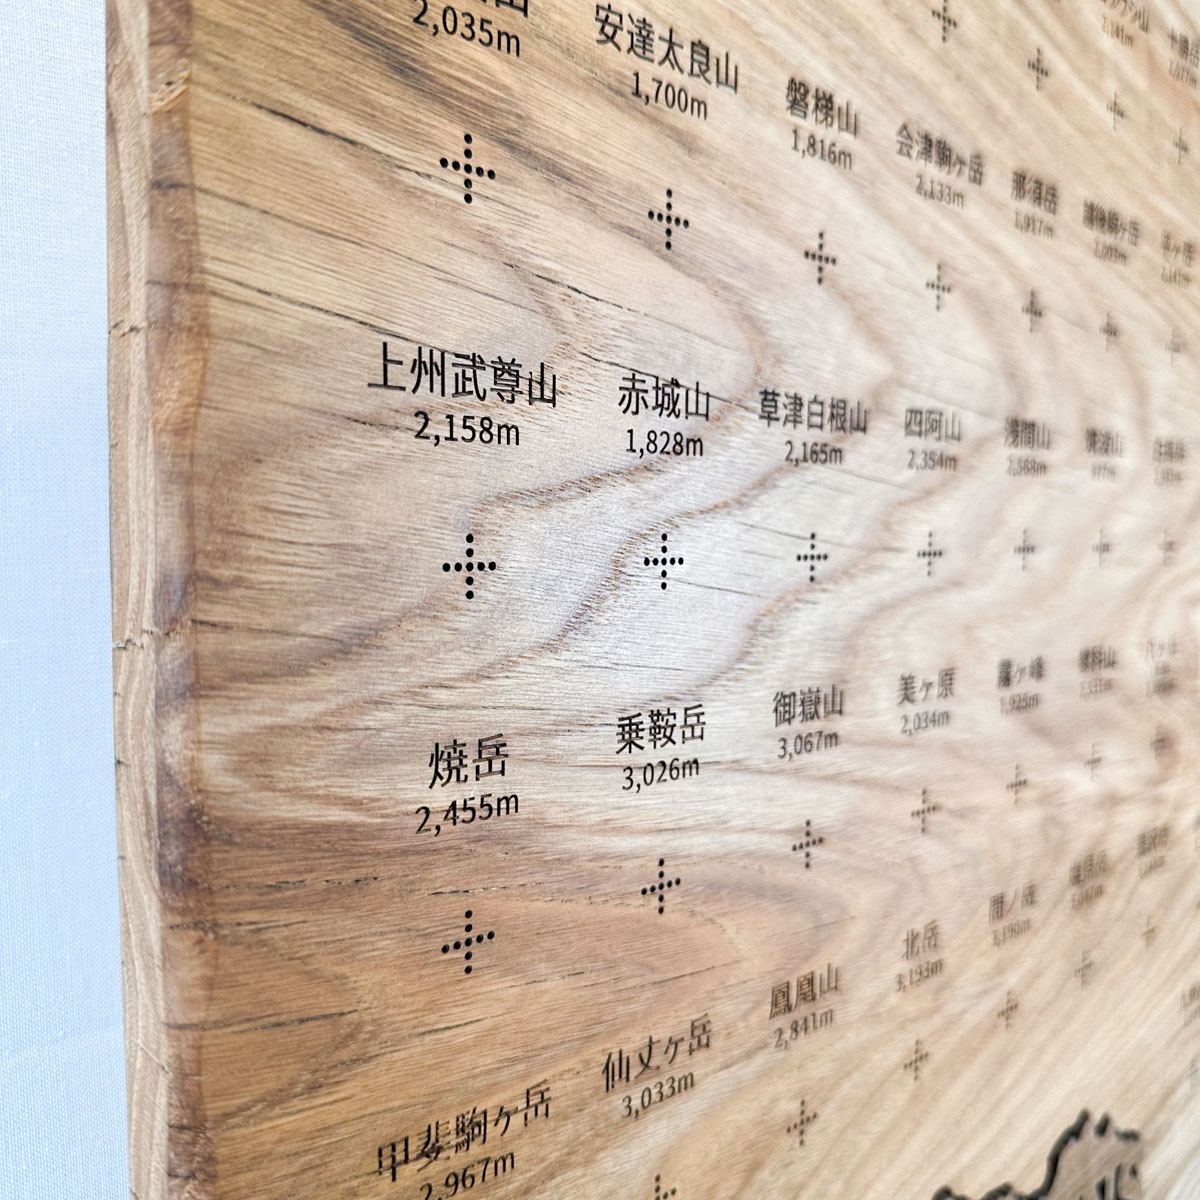 2,035m
安達太良山
1,700m
磐梯山
1,816m
会津駒ヶ岳
2,133m
那須岳
1,917m
越後駒ヶ岳
2,003m
上州武尊山
2,158m
赤城山
1,828m
草津白根山
2,165m
四阿山
2,354m
浅間山
2,568m
筑波山
877m
焼岳
2,455m
乗鞍岳
3,026m
御嶽山
3,067m
美ヶ原
2,034m
霧ヶ峰
1,925m
蓼科山
甲斐駒ヶ岳
2,967m
仙丈ヶ岳
3,033m
鳳凰山
2,841m
北岳
3,193m
間ノ岳
3,190m